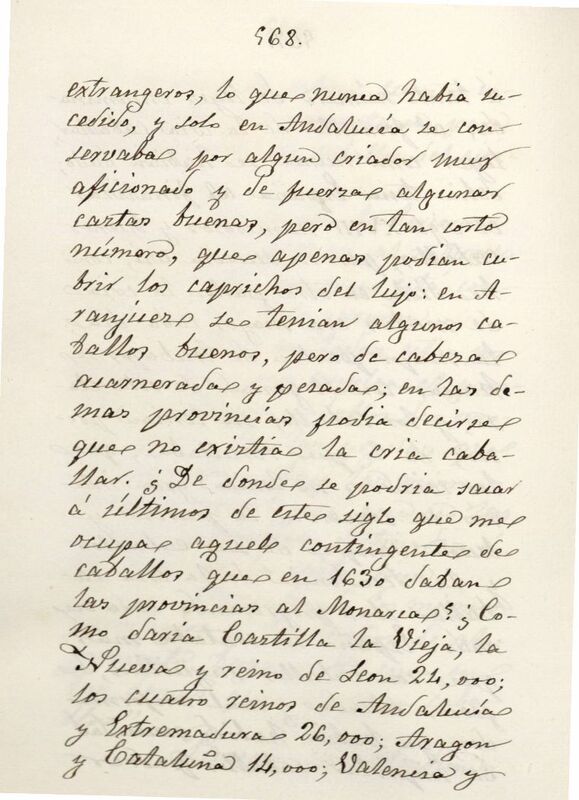 568.
extrangeros, lo que nunca habia su-
cedido, y solo en Andalucía se con-
servaba por algun criador muy
aficionado y de fuerza algunas
castas buenas, pero en tan corto
número, que apenas podian cu-
brir los caprichos del lujo: en A-
ranjuez se tenian algunos ca-
ballos buenos, pero de cabeza
acarnerada y pesada; en las de-
mas provincias podia decirse
que no existia la cria caba-
llar. ¿De donde se podria sacar
á últimos de este siglo que me
ocupa aquel contingente de
caballos que en 1630 daban
las provincias al Monarca? ¿Co-
mo daria Castilla la Vieja, la
Nueva y reino de Leon 24,000;
los cuatro reinos de Andalucía
y Extremadura 26,000; Aragon
y Cataluña 14,000; Valencia y